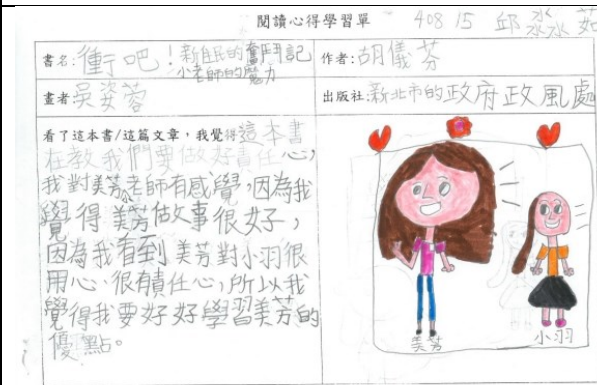 閱讀心得學習單 408 15 邱淼淼茹
書名:衝吧!新住民的奮鬥記
小老師的魔力
作者:胡儀芬
畫者:吳姿蓉
出版社:新北市的政府政風處
看了這本書/這篇文章,我覺得這本書
在教我們要做好責任心,
我對美芳老師有感覺,因為我
覺得美芳做事很好,
因為我看到美芳對小羽很
用心、很有責任心,所以我
覺得我要好好學習美芳的
優點。
美芳
小羽